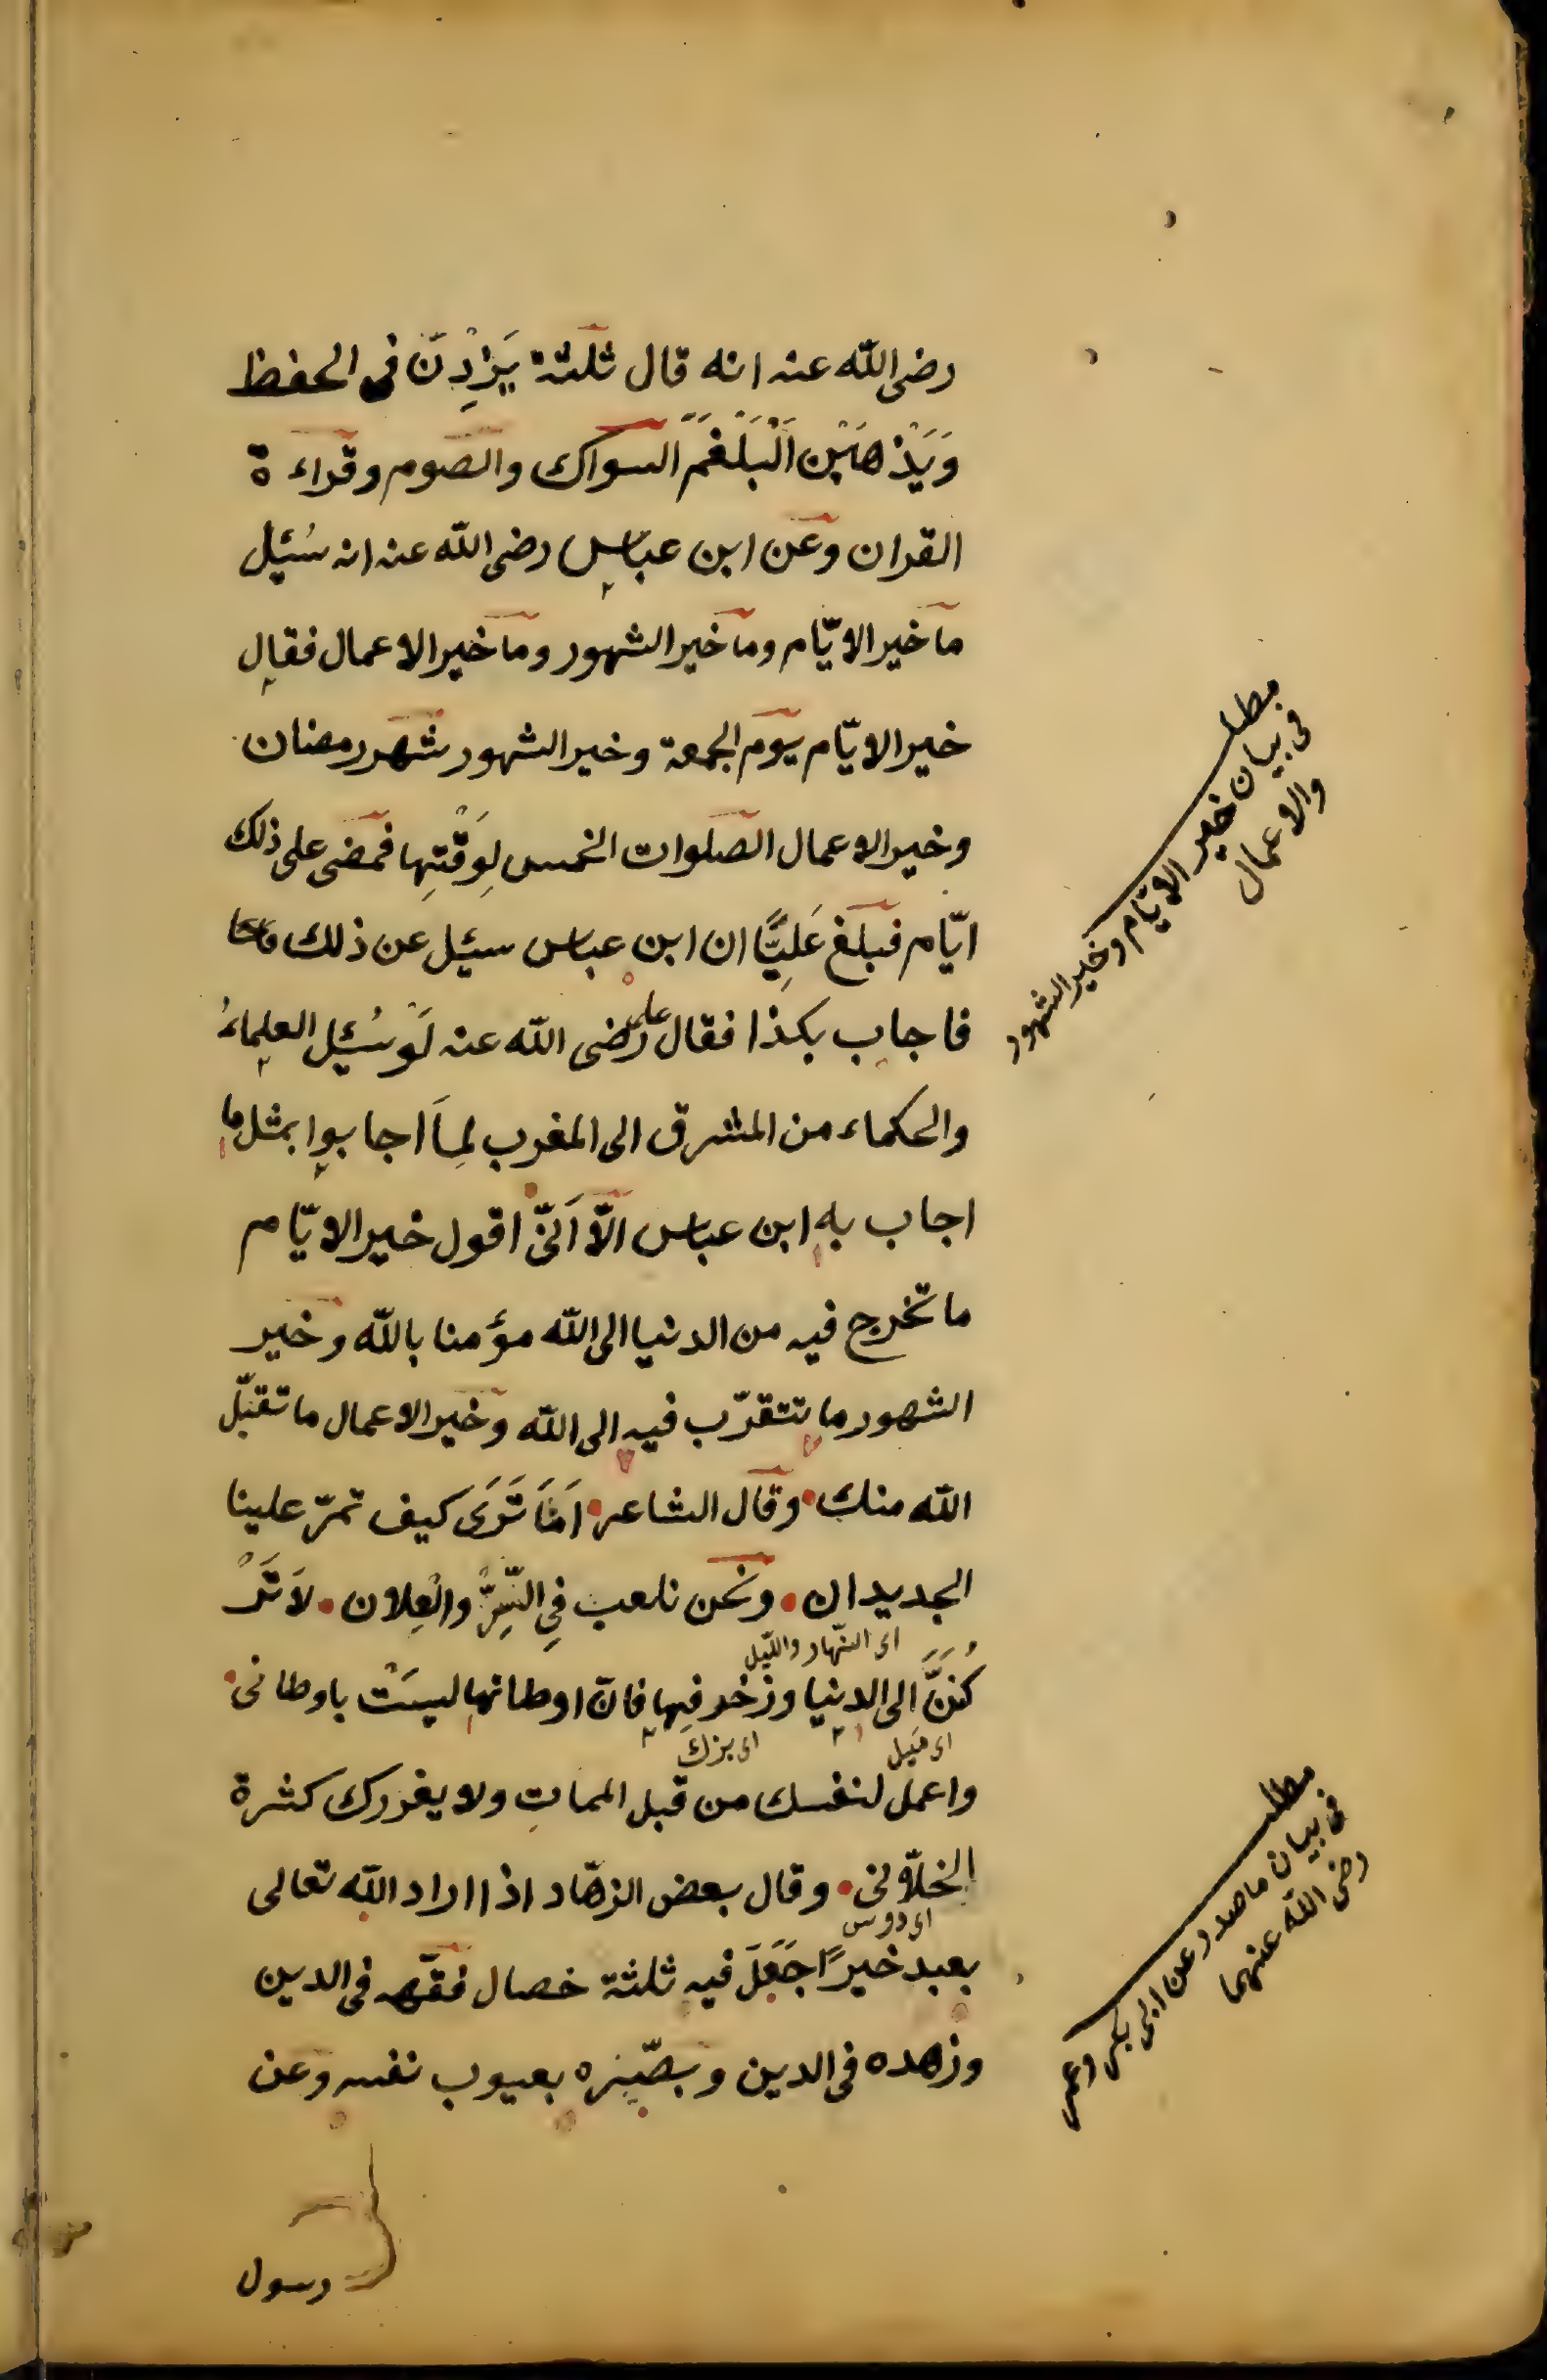 رضى الله عنه انه قال ثلثة يَزِدْنَ فى الحفظ
وَيَذْهَبْنِ اَلْبَلْغَمَ السواك والصوم وقراءة
القران وعن ابن عباس رضى الله عنه انه سُئِل
ما خير الايّام وما خير الشهور وما خير الاعمال فقال
خير الايّام يوم الجمعة وخير الشهور شهر رمضان
وخير الاعمال الصلوات الخمس لِوَقْتِها فمضى على ذلك
ايّام فبلغ عَلِيًّا ان ابن عباس سئِل عن ذلك
فاجاب بكذا فقال على رضى الله عنه لَوْ سُئِل العلماءُ
والحكماء من المشرق الى المغرب لمَا اجابوا بمثل ما
اجاب به ابن عباس الّا اَنّى اقول خير الايّام
ما تخرج فيه من الدنيا الى الله مؤمنا بالله وخير
الشهور ما تتقرّب فيه الى الله وخير الاعمال ما تقبّل
الله منك وقال الشاعر اَمَا تَرَى كيف تمرّ علينا
الجديدان ونحن نلعب فِى السِّرِّ والْعِلان لاَ تَرْ
اى النّهار واللّيل
كُنَنَّ الى الدنيا وزخرفها فانّ اوطانها ليسَتْ باوطانى
اى مَيل
اى بزك
واعمل لنفسك من قبل الممات ولا يغررك كثرة
الخلّانى وقال بعض الزهّاد اذا اراد الله تعالى
اى دوس
بعبد خيرًا جَعَلَ فيه ثلثة خصال فقّهه فى الدين
وزهده فى الدين وبصّيره بعيوب نفسه وعن
رسول
مطلب
فى بيان خير الايّام وخير الشهور
والاعمال
مطلب
فى بيان ما صدر عن ابى بكر وعمر
رضى الله عنهما